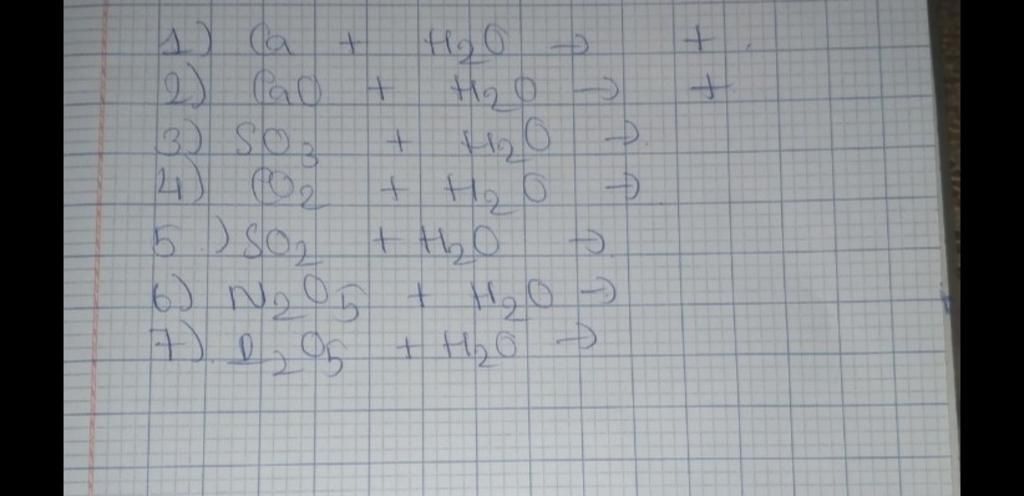 1) Ca + H2O → + .
2) CaO + H2O → +
3) SO3 + H2O →
4) CO2 + H2O →
5.) SO2 + H2O →
6) N2O5 + H2O →
7) P2O5 + H2O →